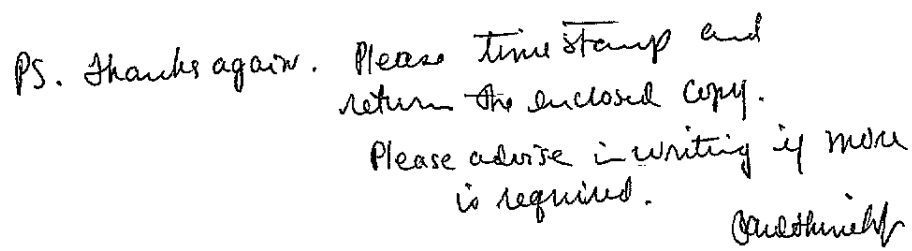 PS. Thanks again. Please time stamp and
return the enclosed copy.
Please advise in writing if more
is required.